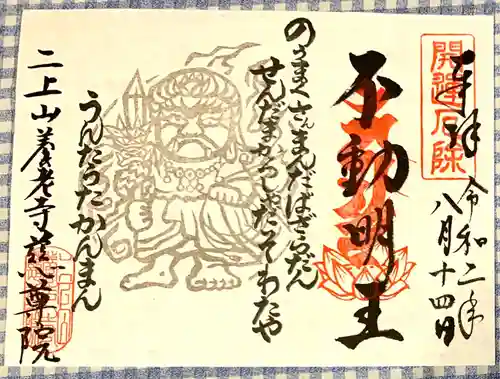 奉拝
開運厄除
令和二年
八月十四日
不動明王
のうまくさんまんだばざらだん
せんだまかろしゃだそわたや
うんたらたかんまん
二上山養老寺慈尊院